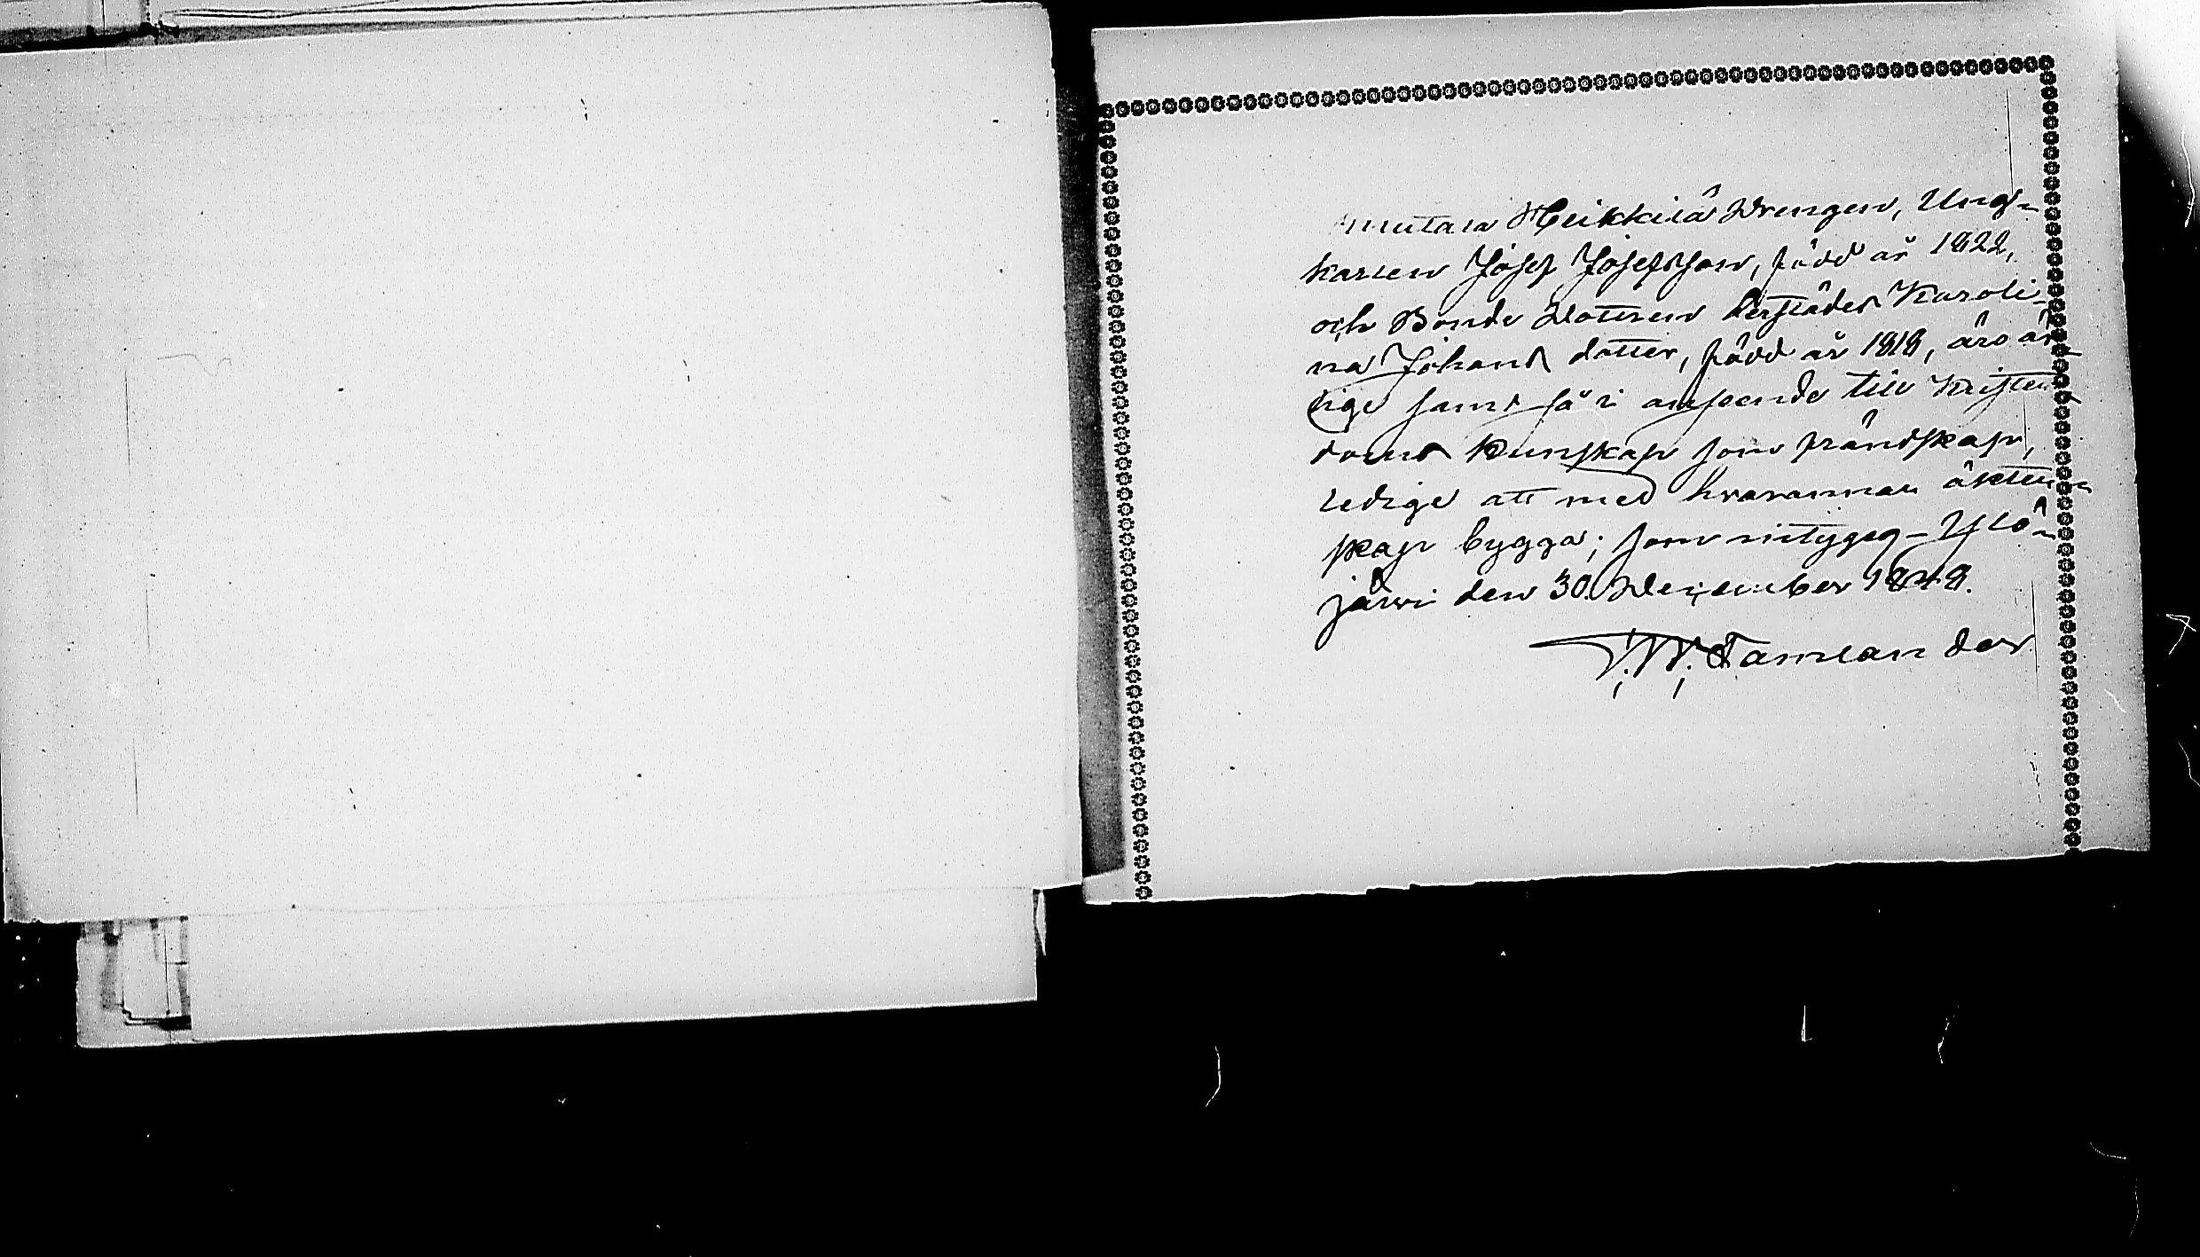 Mutala Heikkilä Drengen, Ung-
karlen Josef Josefsson, född år 1822,
och Bonde Dottren derstädes Karoli-
na Johans dotter, född år 1818, äro är-
lige samt så i anseende till Kristen-
doms kunskap som frändskap,
ledige att med hvarannan äkten-
skap bygga; som intygas. Ylö-
järvi den 30. December 1848.
Tamlander